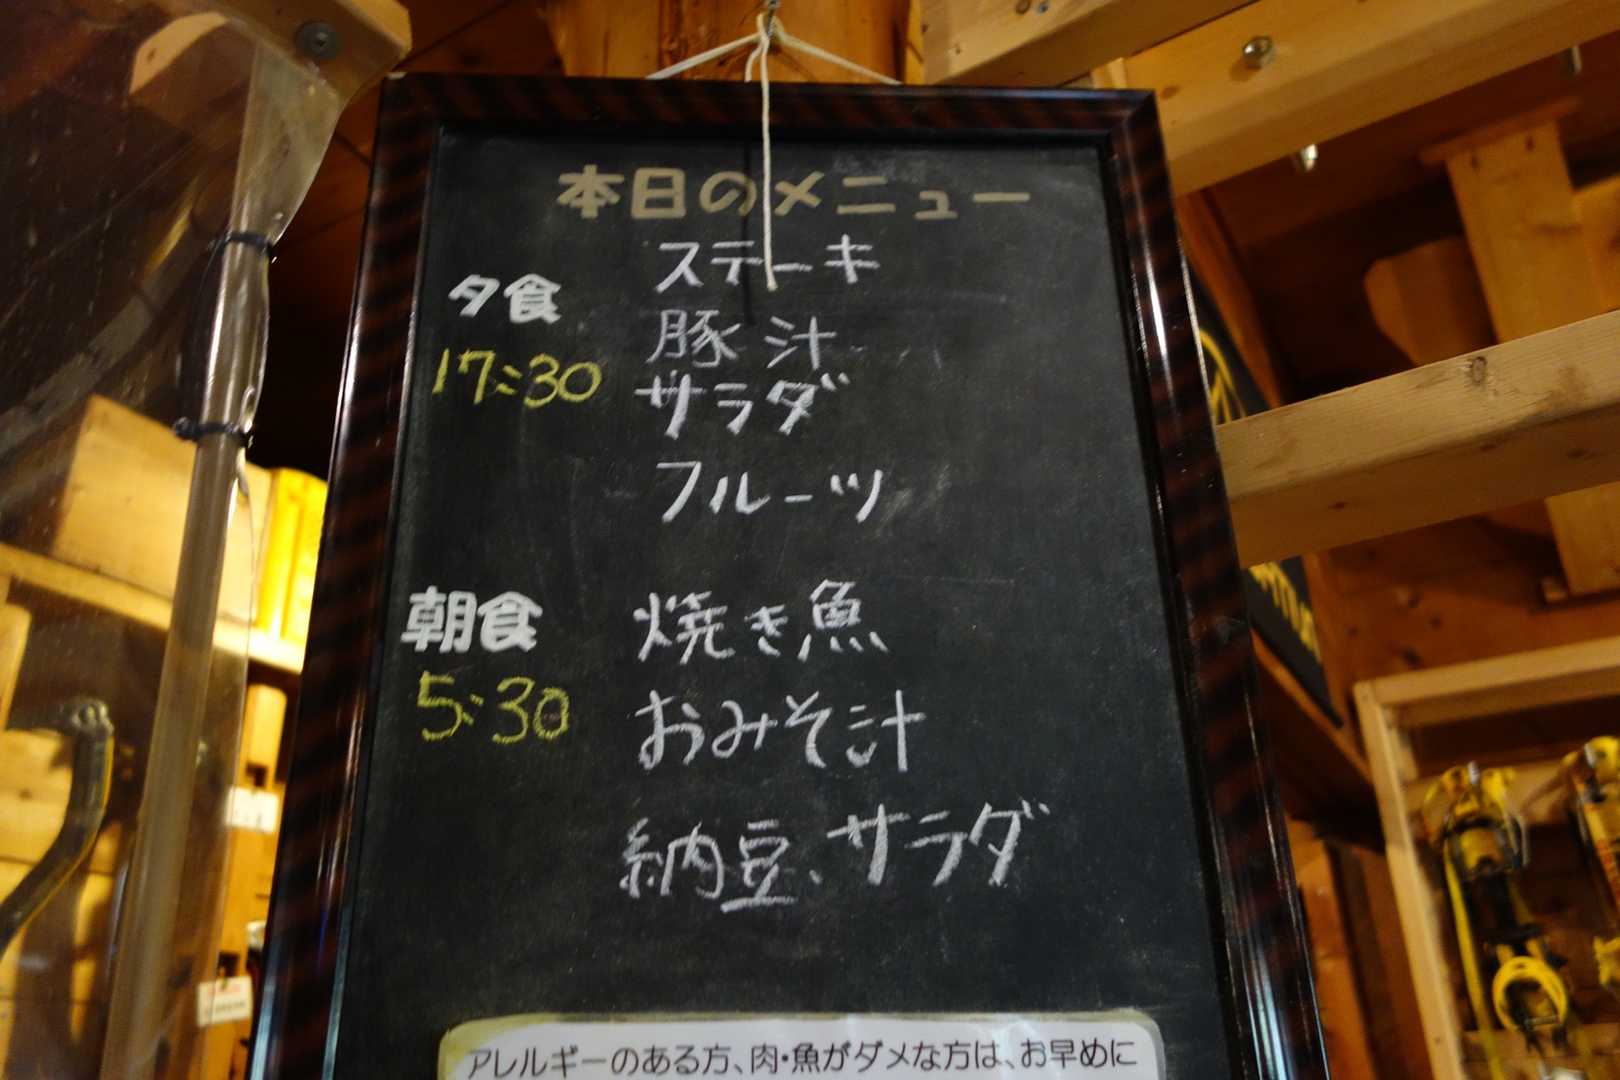 本日のメニュー
夕食
17:30
ステーキ
豚汁
サラダ
フルーツ
朝食
5:30
焼き魚
おみそ汁
納豆、サラダ
アレルギーのある方、肉・魚がダメな方は、お早めに